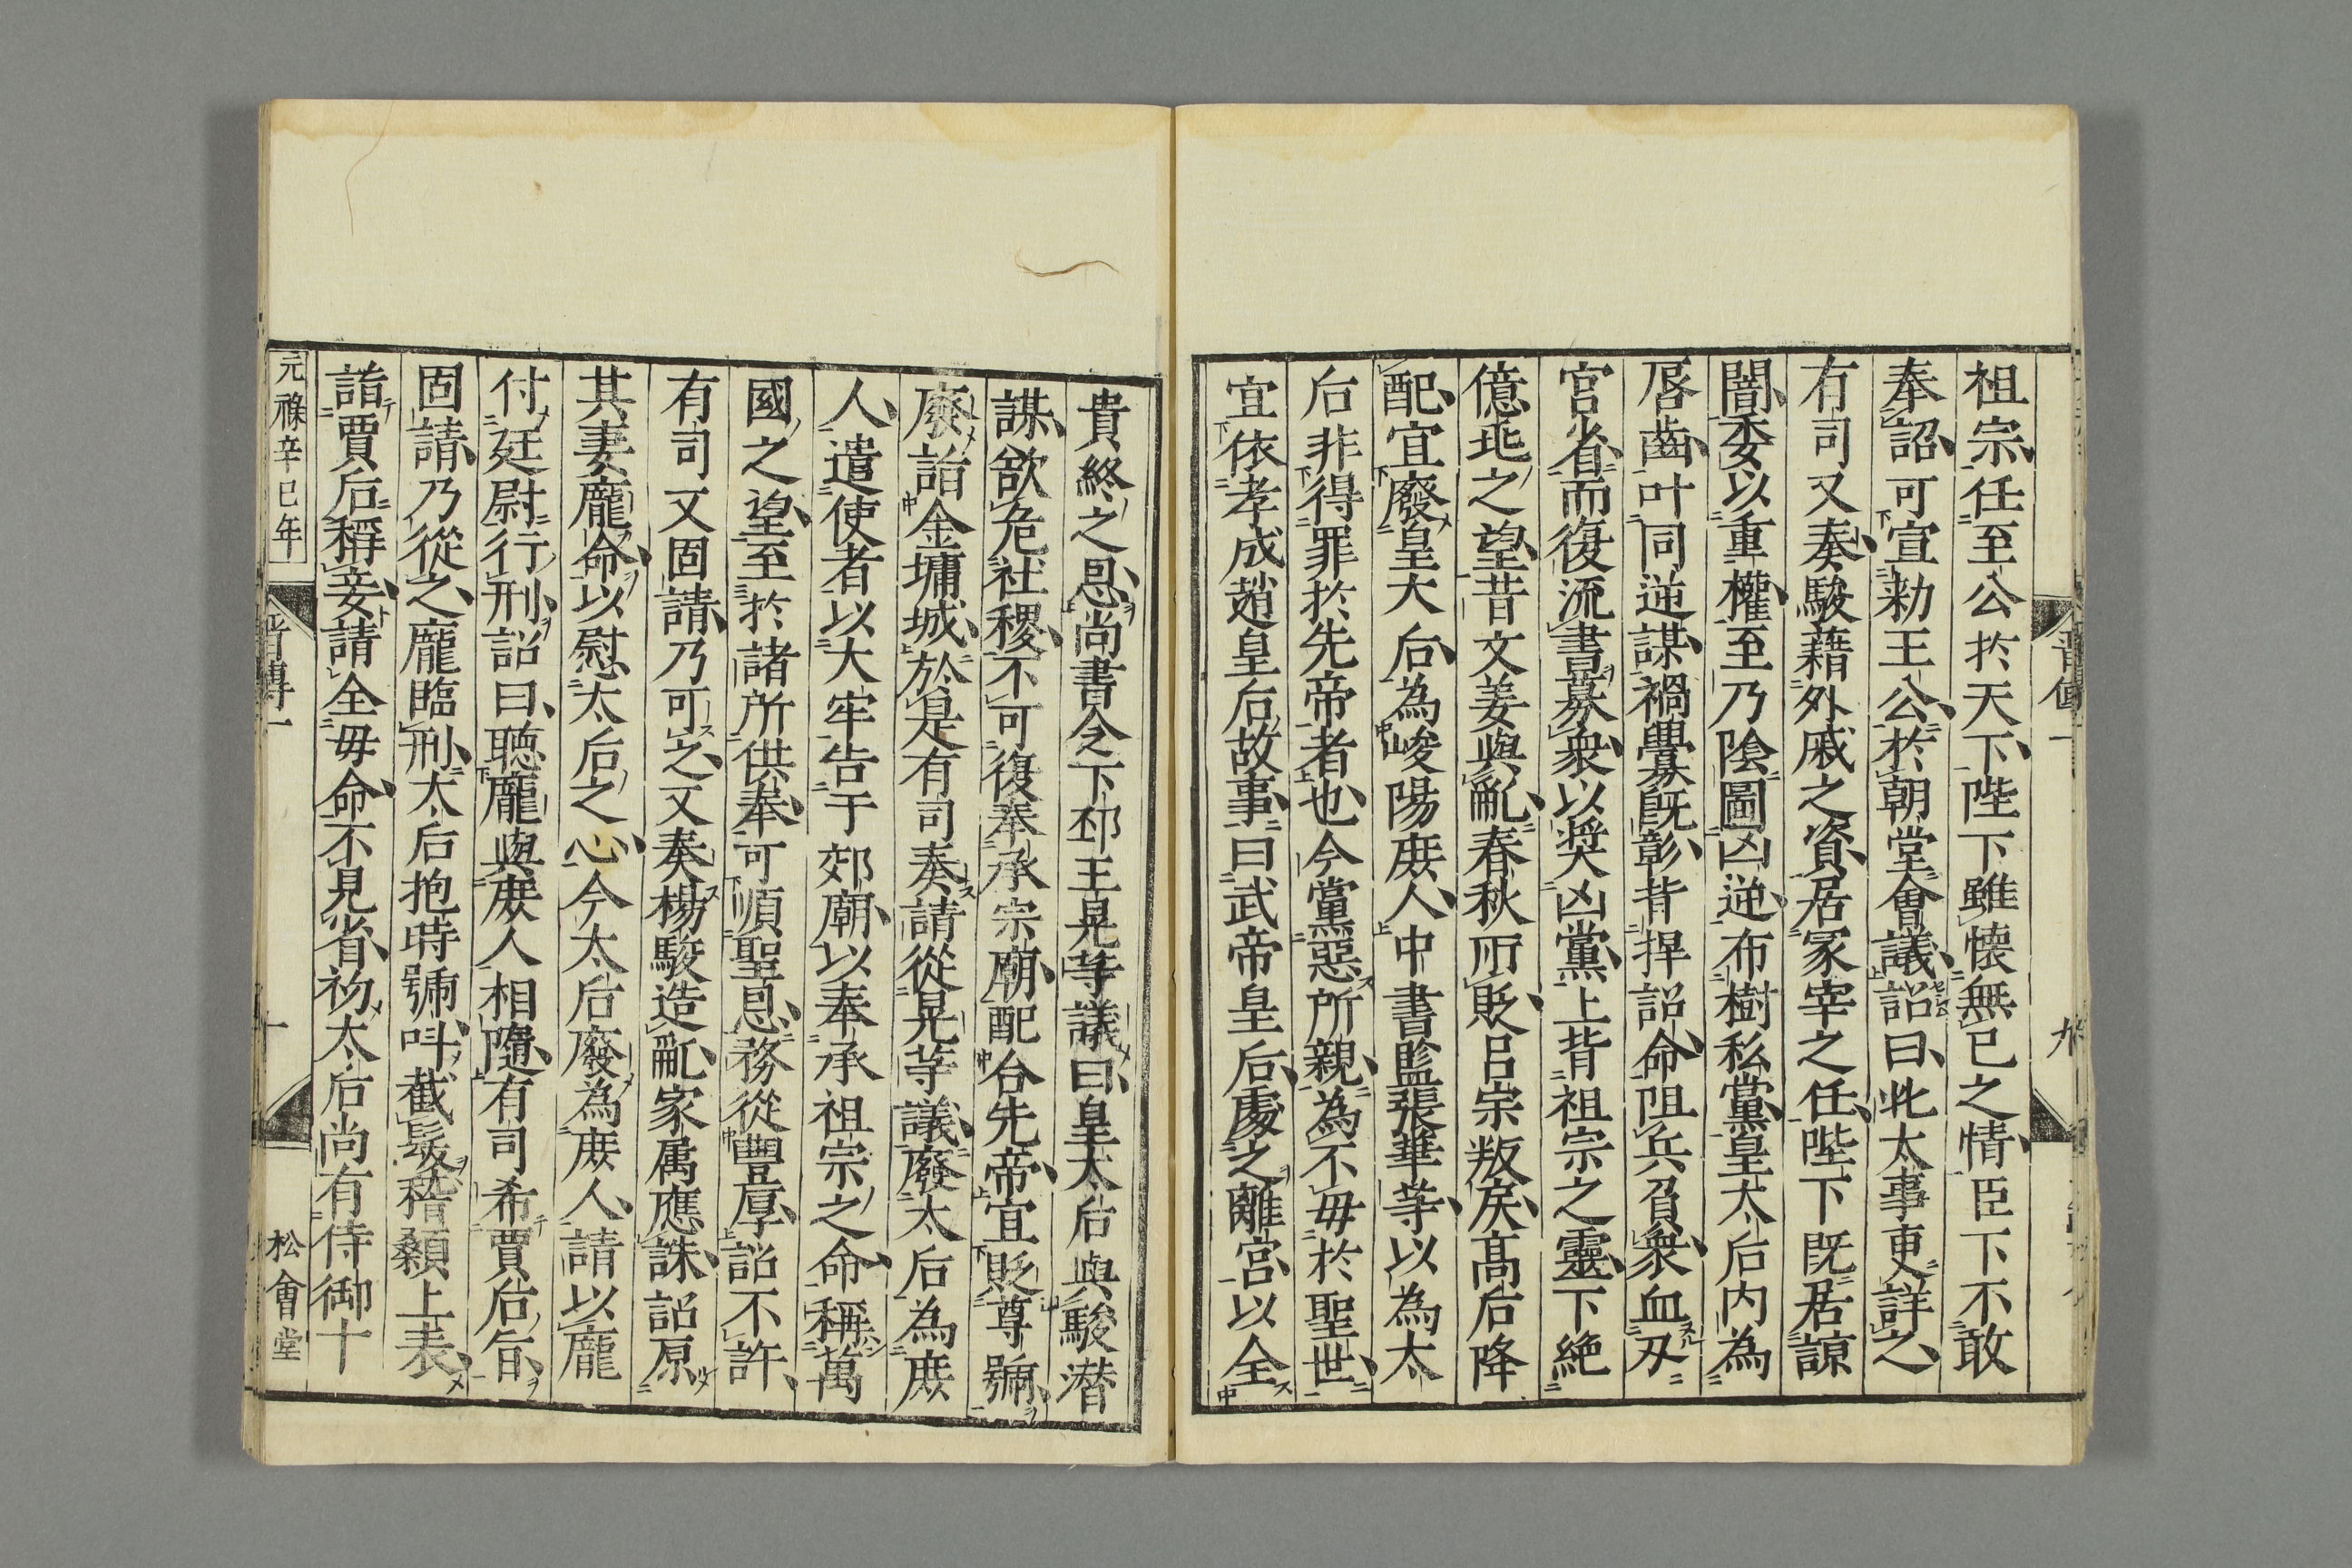 祖宗任至公於天下陛下雖懷無已之情臣下不敢
奉詔可宣勑王公於朝堂會議詔曰此太事更詳之
有司又奏駿藉外戚之資居冢宰之任陛下既居諒
闇委以重權至乃陰圖凶逆布樹私黨皇太后内為
唇齒叶同逆謀禍舋既彰背捍詔命阻兵負衆血刃
宮省而復流書募衆以奬凶黨上背祖宗之靈下絶
億兆之望昔文姜與亂春秋所貶呂宗叛戾髙后降
配宜廢皇太后為峻陽庻人中書監張華等以為太
后非得罪於先帝者也今黨惡所親為不毋於聖世
宜依孝成趙皇后故事曰武帝皇后處之離宮以全
貴終之恩尚書令下邳王晃等議曰皇太后與駿潜
謀欲危社稷不可復奉承宗廟配合先帝宜貶尊號
廢詣金墉城於是有司奏請從晃等議廢太后為庻
人遣使者以大牢告于郊廟以奉承祖宗之命稱萬
國之望至於諸所供奉可順聖恩務從豐厚詔不許
有司又固請乃可之又奏楊駿造亂家属應誅詔原
其妻龐命以慰太后之心今太后廢為庻人請以龐
付廷尉行刑詔曰聽龐與庻人相隨有司希賈后旨
固請乃從之龐臨刑太后抱持號呌截髮稽顙上表
詣賈后稱妾請全毋命不見省初太后尚有侍御十
元祿辛巳年
晉傳一
十
松會堂